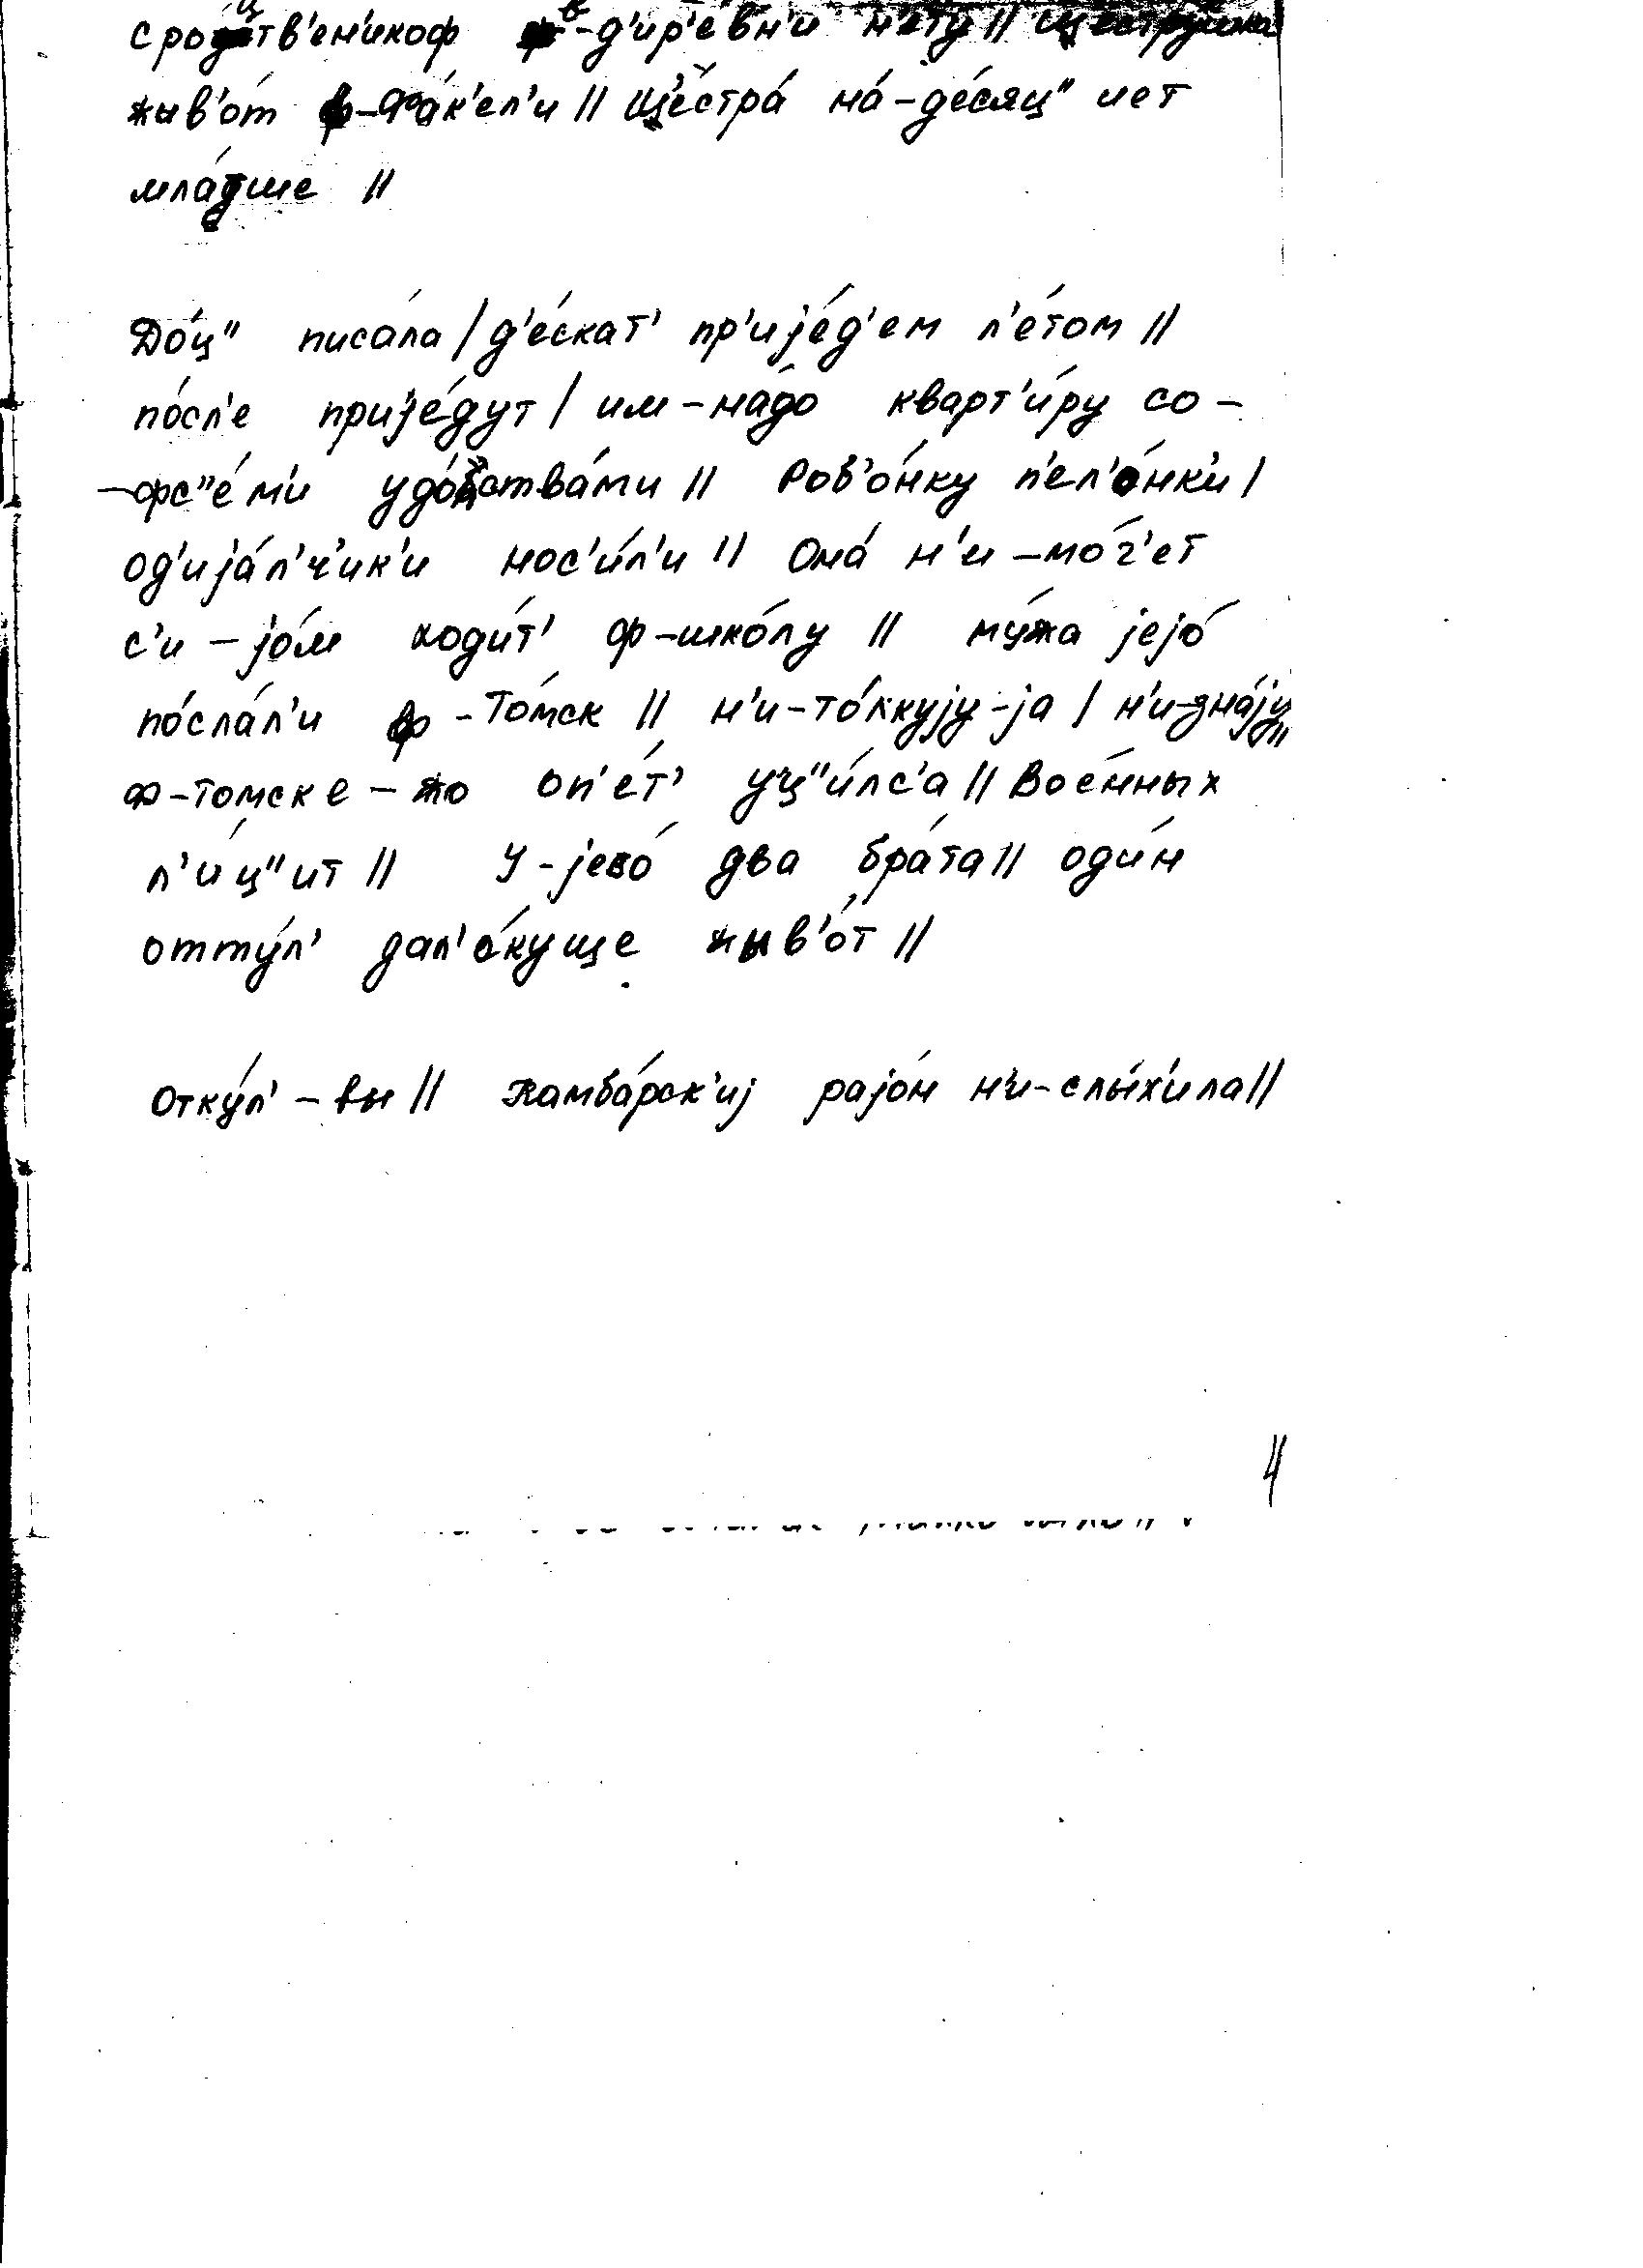 сроцтв'ен'икоф в-д'ир'е́вн'и н'е́ту || щеструшка
жыв'о́т ф-Фа́к'ел'и || Ще́стра́ на́-де́сяц" лет
мла́тше ||
До́ц" писа́ла / д'е́скат' пр'ије́д'ем л'е́том ||
по́сл'е приjéдут / им-на́до кварт'и́ру со-
-фс"е́м'и удо́пства́ми || Роб'о́нку п'ел'о́нк'и /
од'иjа́л'ч'ик'и нос'и́л'и || Она́ н'и-мо́г'ет
с'и-jо́м ходи́т' ф-шко́лу || му́жа jejо́
по́сла́л'и ф-То́мск || н'и-то́лкуjу-ja / н'и-зна́jу ||
ф-томске-жо оп'е́т' уц"и́лс'а || Вое́нных
л'и́ц"ит || У-jево́ два бра́та || оди́н
отту́л' дал'о́куще жыв'о́т ||
Отку́л'-вы || Камба́рск'иj раjо́н н'и-слы́х'ила ||
4